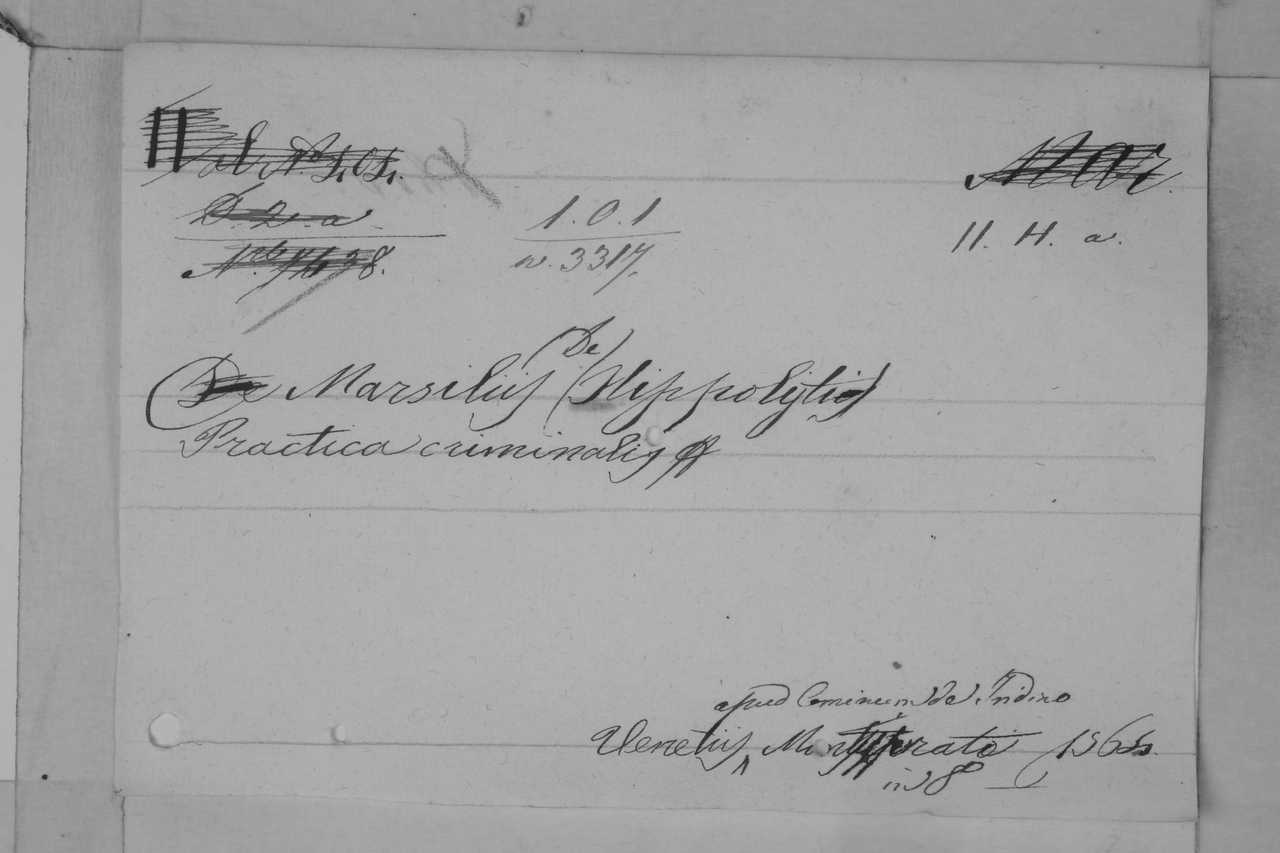 D. 2. a.
1. 0. 1
n. 3317.
11. H. a.
De Marsiliis (De Hippolytis)
Practica criminalis
apud Cominum de Tridino
Venetiis, Montisferrati 1564
in 8°